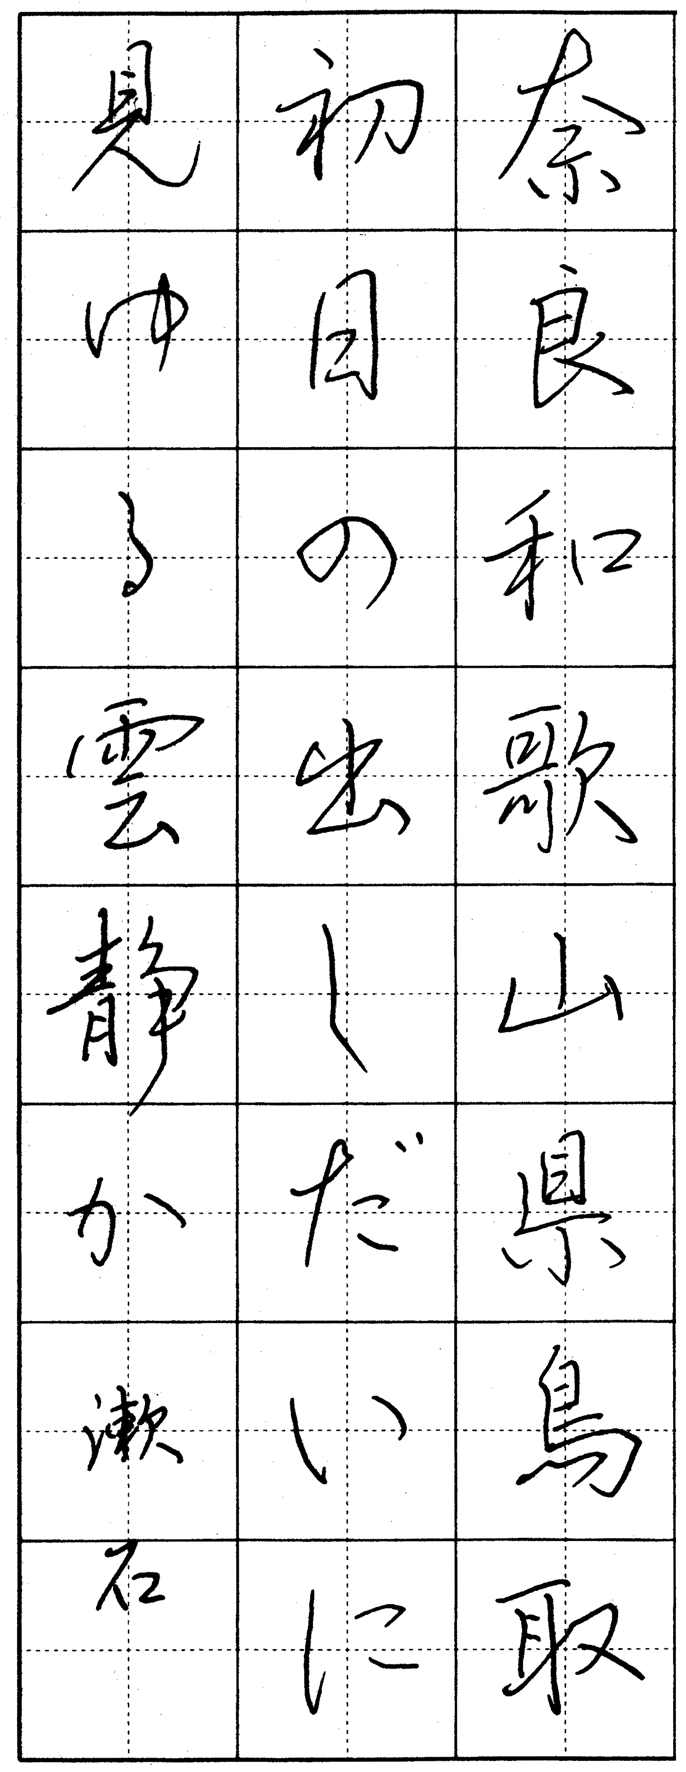 奈良和歌山県鳥取
初日の出しだいに
見ゆる雲静か漱石